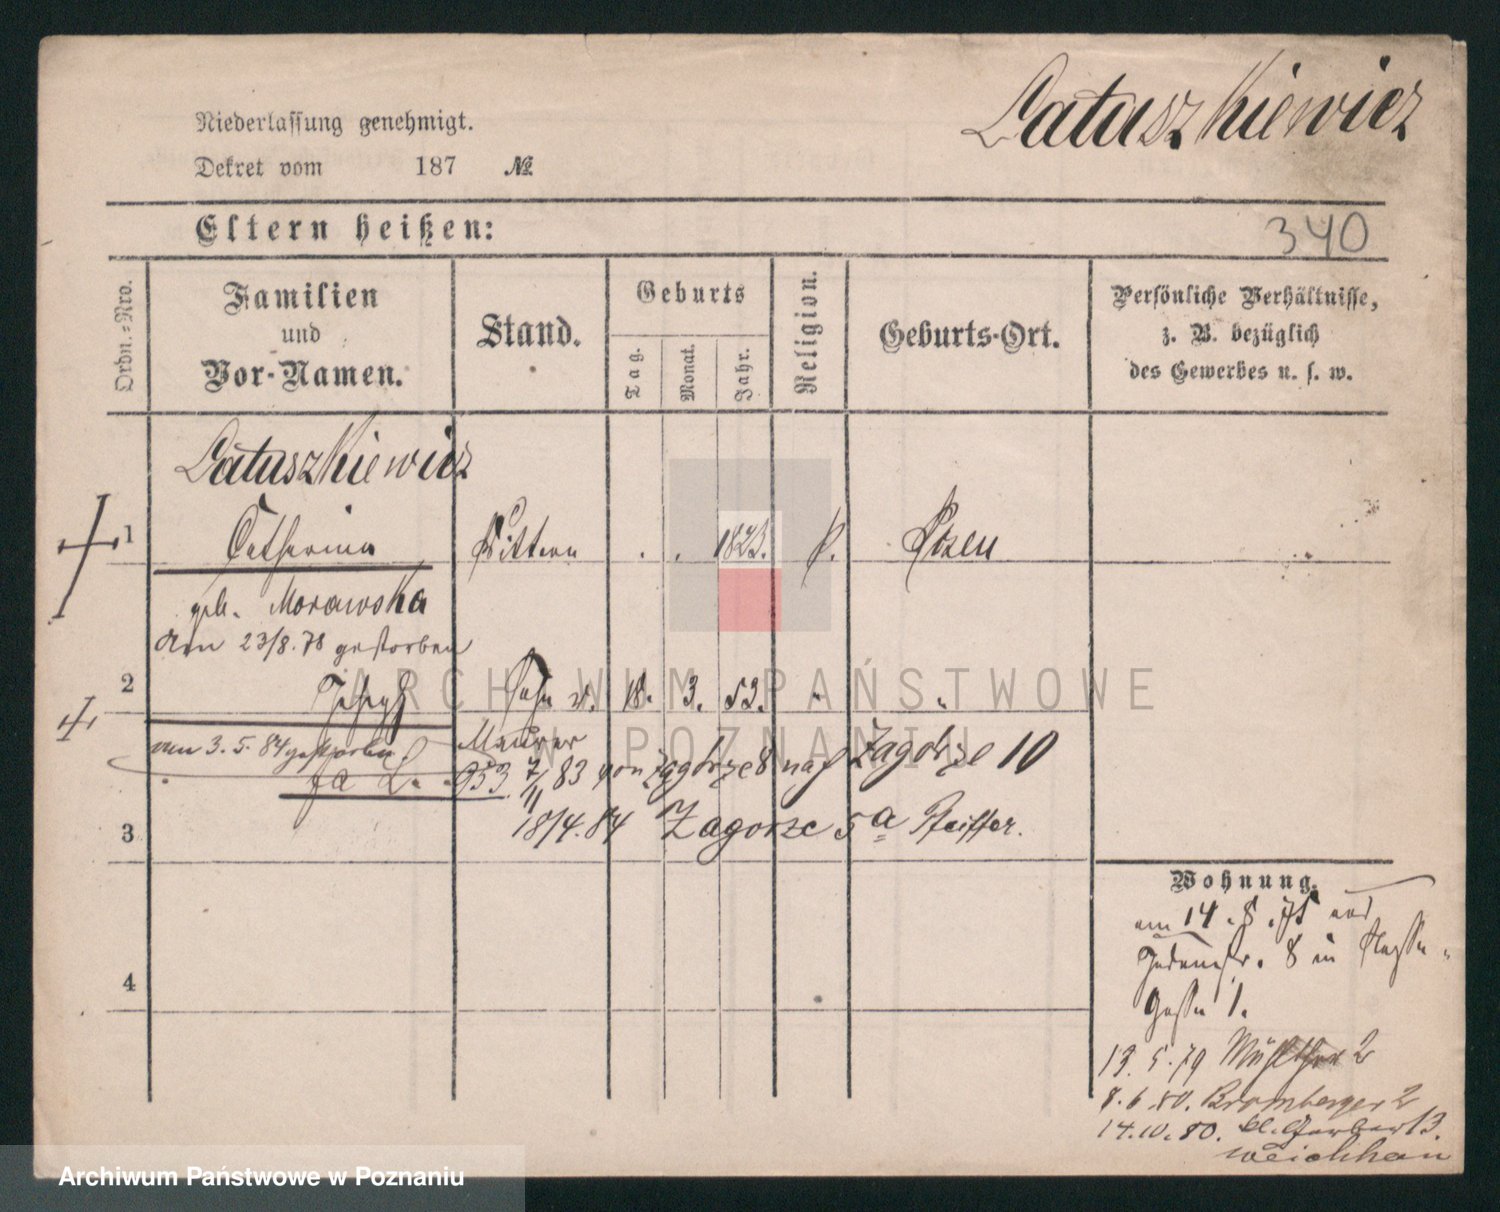 Latuszkiewicz
Niederlassung genehmigt.
Dekret vom 187 №
Eltern heißen:
340
Ordn.-Nro.
Familien
und
Vor-Namen.
Stand.
Geburts
Tag.
Monat.
Jahr.
Religion.
Geburts-Ort.
Persönliche Verhältnisse,
z. B. bezüglich
des Gewerbes u. s. w.
Latuszkiewicz
1 Catharina 1823. Posen
geb. Morawska
am 23/8. 78 gestorben
2 Joseph Sohn v. 18. 3. 53. " "
am 3. 5. 84 gestorben. Maurer
953 7/11 83 von Zagórze 8 nach Zagórze 10
18/4. 84 Zagorze 5a Pfeiffer.
3
4
Wohnung.
am 14. 8. 75 aus
8 in
Gasse 1.
13. 5. 79 2
8. 6. 80. Bromberger 2
14. 10. 80. kl. Gerber 13.
ARCHIWUM PAŃSTWOWE
W POZNANIU
Archiwum Państwowe w Poznaniu